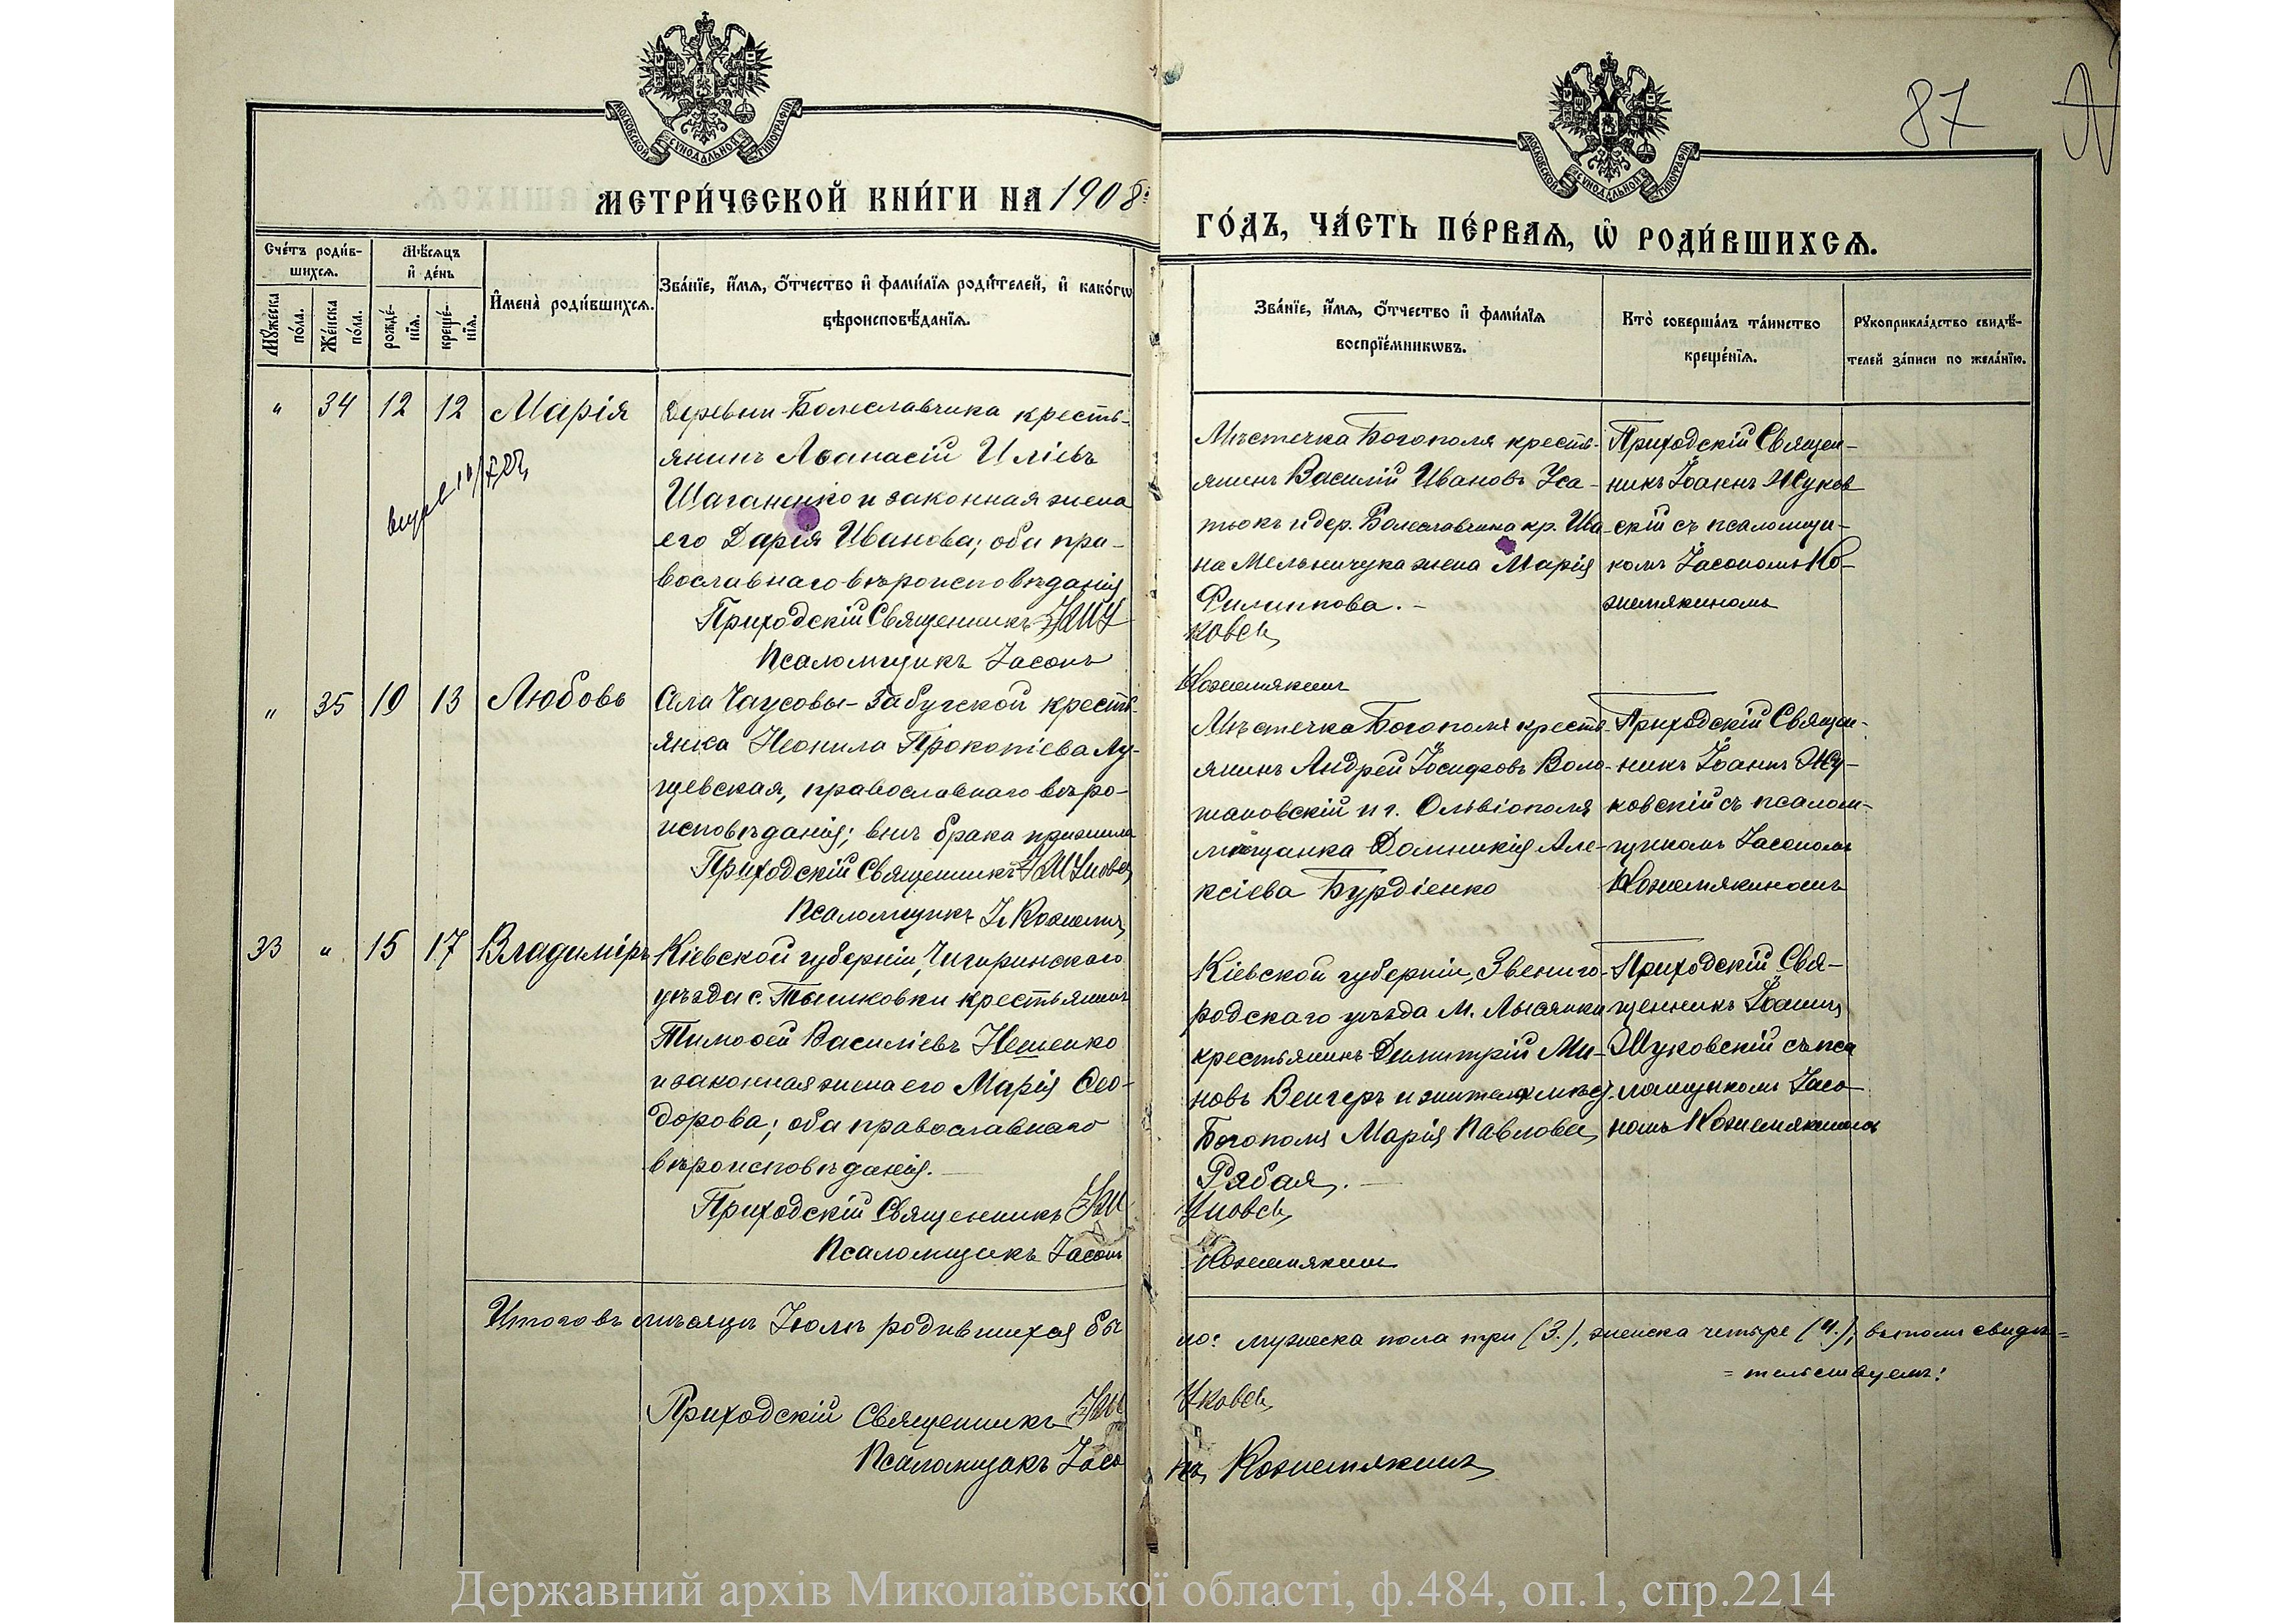 МОСКОВСКОЙ СѴНОДАЛЬНОЙ ТИПОГРАФІИ
МОСКОВСКОЙ СѴНОДАЛЬНОЙ ТИПОГРАФІИ
87
МЕТРИ́ЧЕСКОЙ КНИ́ГИ НА 1908й
ГО́ДЪ, ЧА́СТЬ ПЕ́РВАѦ, Ѡ҆ РОДИ́ВШИХСѦ.
Сче́тъ роди́в-
шихсѧ.
Мꙋ́жеска по́ла.
Же́нска по́ла.
Мѣ́сѧцъ
и҆ де́нь
рожде́-
нїѧ.
креще́-
нїѧ.
И҆мена̀ роди́вшихсѧ.
Зва́нїе, и҆́мѧ, ѻ҆́тчество и҆ фами́лїѧ роди́телей, и҆ како́гѡ
вѣроисповѣ́данїѧ.
Зва́нїе, и҆́мѧ, ѻ҆́тчество и҆ фами́лїѧ
воспрїе́мникѡвъ.
Кто̀ соверша́лъ та́инство
креще́нїѧ.
Рꙋкоприкла́дство свидѣ́-
телей за́писи по жела́нїю.
" 34 12 12 Марія
деревни Болеславчика кресть-
янинъ Аѳанасій Иліевъ
Шаганенко и законная жена
его Дарія Иванова; оба пра-
вославнаго вѣроисповѣданія
Приходскій Священникъ І Жу
Псаломщикъ Іасонъ
Мѣстечка Богополя кресть-
янинъ Василій Ивановъ Уса-
тюкъ и дер. Болеславчика кр. Ива-
на Мельничука жена Марія
Филиппова. –
ковск
Кожемякинъ
Приходскій Священ-
никъ Іоаннъ Жуков
скій съ псаломщи-
комъ Іасономъ Ко-
жемякиномъ
" 35 10 13 Любовь
Села Чаусовы-Забугской кресть-
янка Неонила Прокопіева Лу-
щевская, православнаго вѣро-
исповѣданія; внѣ брака прижила
Приходскій Священникъ І Жуковск
Псаломщикъ Іа Кожемяк
Мѣстечка Богополя кресть-
янинъ Андрей Іосифовъ Воло-
шановскій и г. Ольвіополя
мѣщанка Домникія Але-
ксіева Бурдіенко
Приходскій Священ-
никъ Іоаннъ Жу-
ковскій съ псалом-
щикомъ Іасономъ
Кожемякиномъ
33 " 15 17 Владиміръ
Кіевской губерніи, Чигиринскаго
уѣзда с. Тышковки крестьянинъ
Тимоѳей Василіевъ Нешенко
и законная жена его Марія Ѳео-
дорова; оба православнаго
вѣроисповѣданія. –
Приходскій Священникъ І Жу
Псаломщикъ Іасонъ
Кіевской губерніи, Звениго-
родскаго уѣзда м. Лысянки
крестьянинъ Димитрій Ми-
новъ Венгеръ и жителя мѣст.
Богополя Марія Павлова
Рябая. –
ковск
Кожемякинъ
Приходскій Свя-
щенникъ Іоаннъ
Жуковскій съ пса
ломщикомъ Іасо-
номъ Кожемякиномъ
Итого въ мѣсяцѣ Іюлѣ родившихся бы
ло: мужеска пола три (3.), женска четыре (4.); въ томъ свидѣ=
=тельствуемъ:
Приходскій Священникъ І Жу
ковск
Псаломщикъ Іасо
нъ Кожемякинъ
Державний архів Миколаївської області, ф.484, оп.1, спр.2214